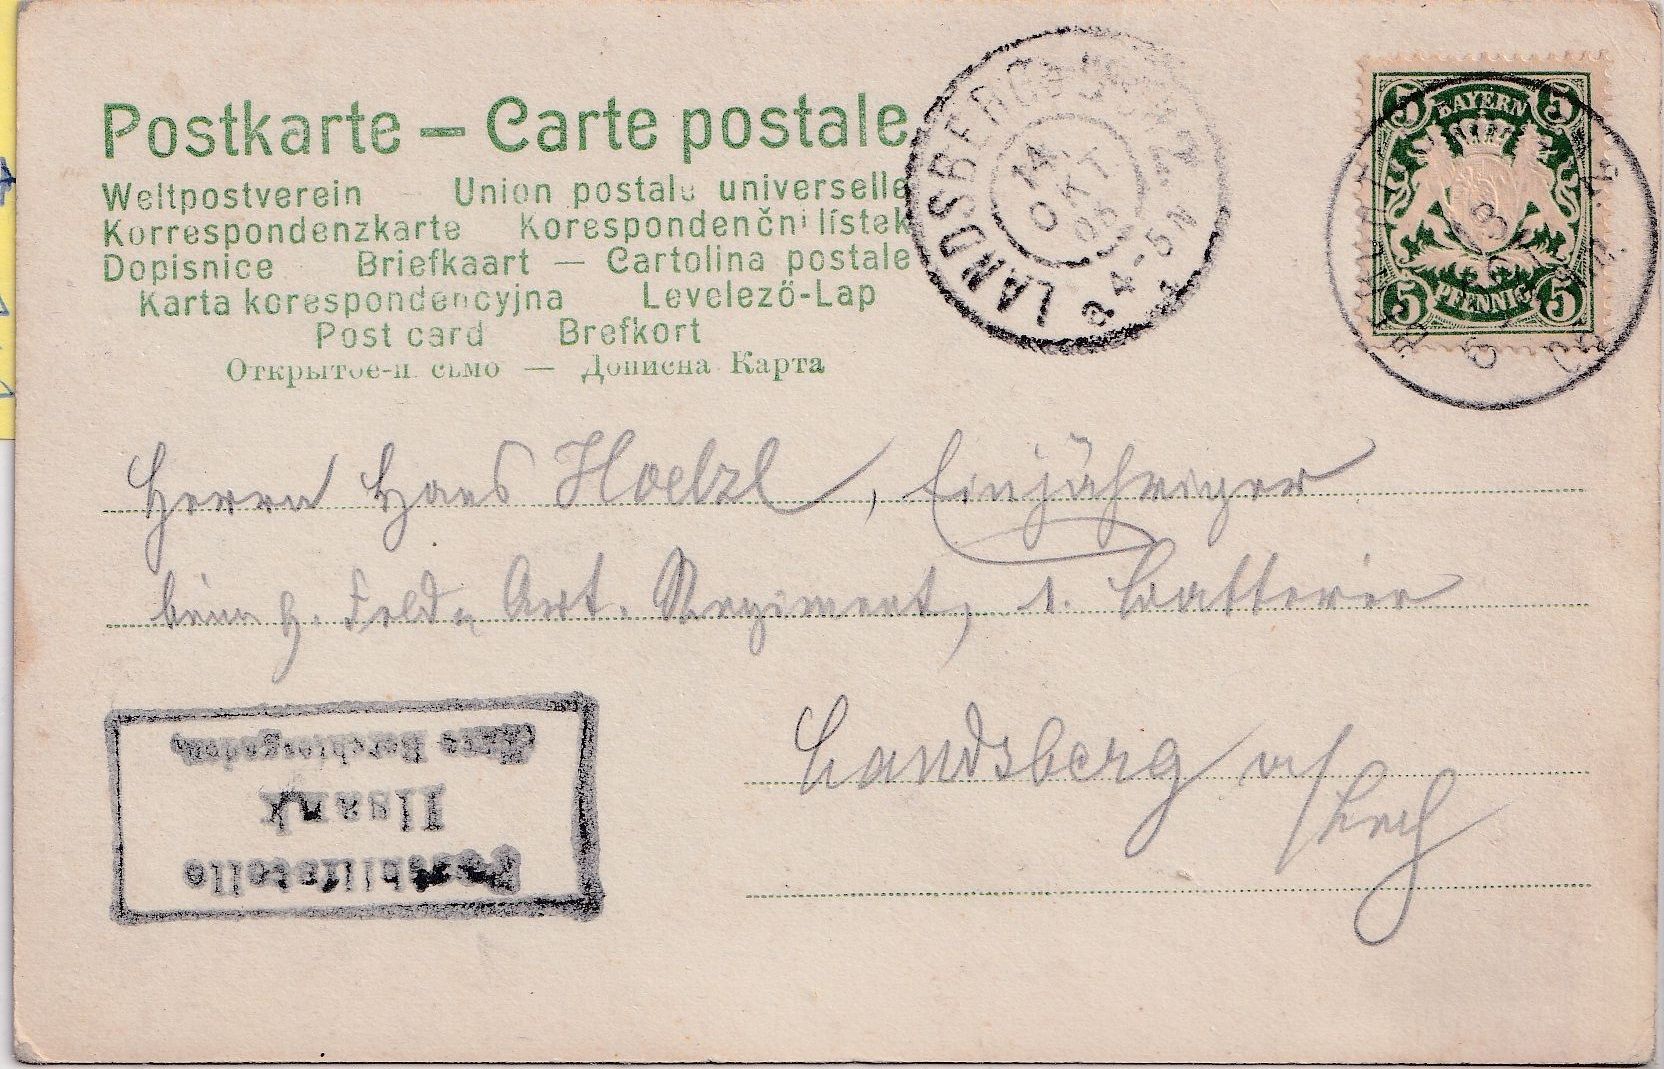 Postkarte – Carte postale
Weltpostverein – Union postale universelle
Korrespondenzkarte Korespondenční lístek
Dopisnice Briefkaart – Cartolina postale
Karta korespondencyjna Levelező-Lap
Post card Brefkort
Открытое-п сьмо — Дописна Карта
LANDSBERG
14.
OKT
05
4-5N
5 BAYERN 5
5 PFENNIG 5
Herrn Hans Hoelzl, Einjähriger
beim 9. Feld Art. Regiment, 1. Batterie
Landsberg a/Lech
Posthilfstelle
Ilsank
(Taxe Berchtesgaden)